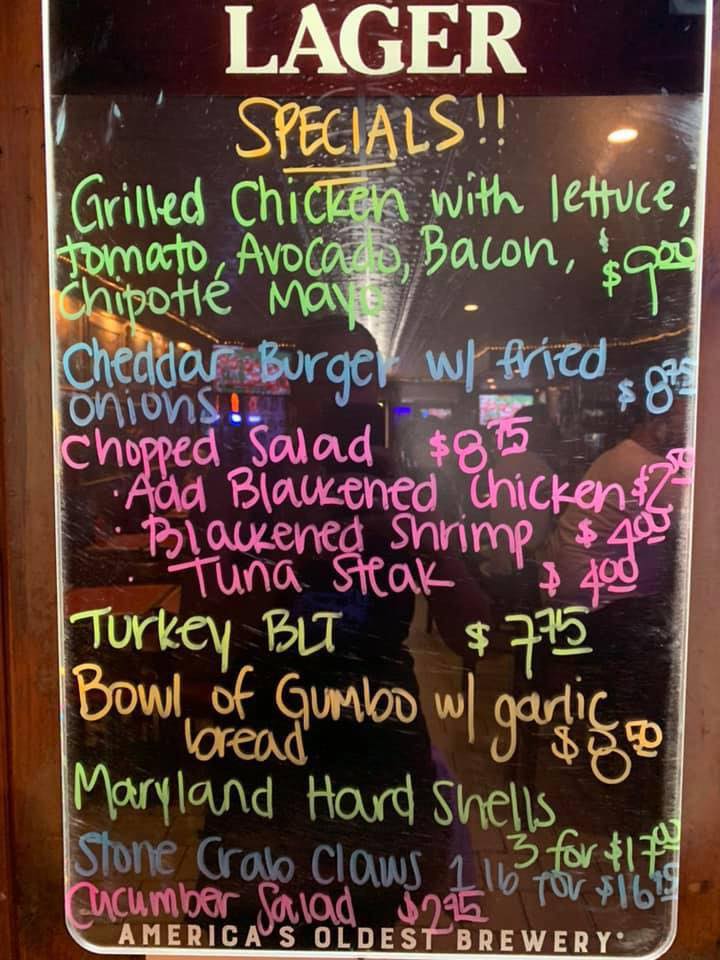 LAGER
SPECIALS!!
Grilled Chicken with lettuce,
tomato, Avocado, Bacon, & $9.00
Chipotle Mayo
Cheddar Burger w/ fried
onions $8.75
Chopped Salad $8.75
· Add Blackened Chicken $2.50
· Blackened Shrimp $4.00
· Tuna Steak $4.00
Turkey BLT $7.75
Bowl of Gumbo w/ garlic
bread $8.50
Maryland Hard Shells
3 for $17.00
Stone Crab Claws 1 lb for $16.95
Cucumber Salad $2.95
AMERICA'S OLDEST BREWERY®